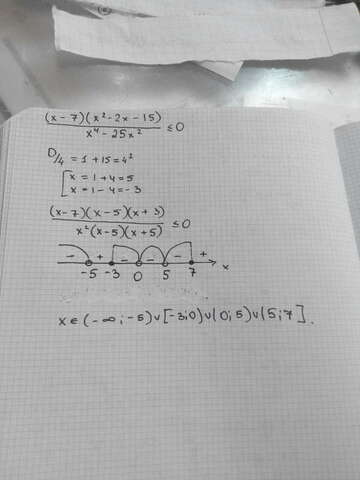 (x-7)(x²-2x-15)/(x⁴-25x²) ≤ 0
D/4 = 1+15 = 4²
[x = 1+4 = 5
x = 1-4 = -3
(x-7)(x-5)(x+3)/(x²(x-5)(x+5)) ≤ 0
- + - - - +
-5 -3 0 5 7 x
x ∈ (-∞; -5) ∪ [-3; 0) ∪ (0; 5) ∪ (5; 7].